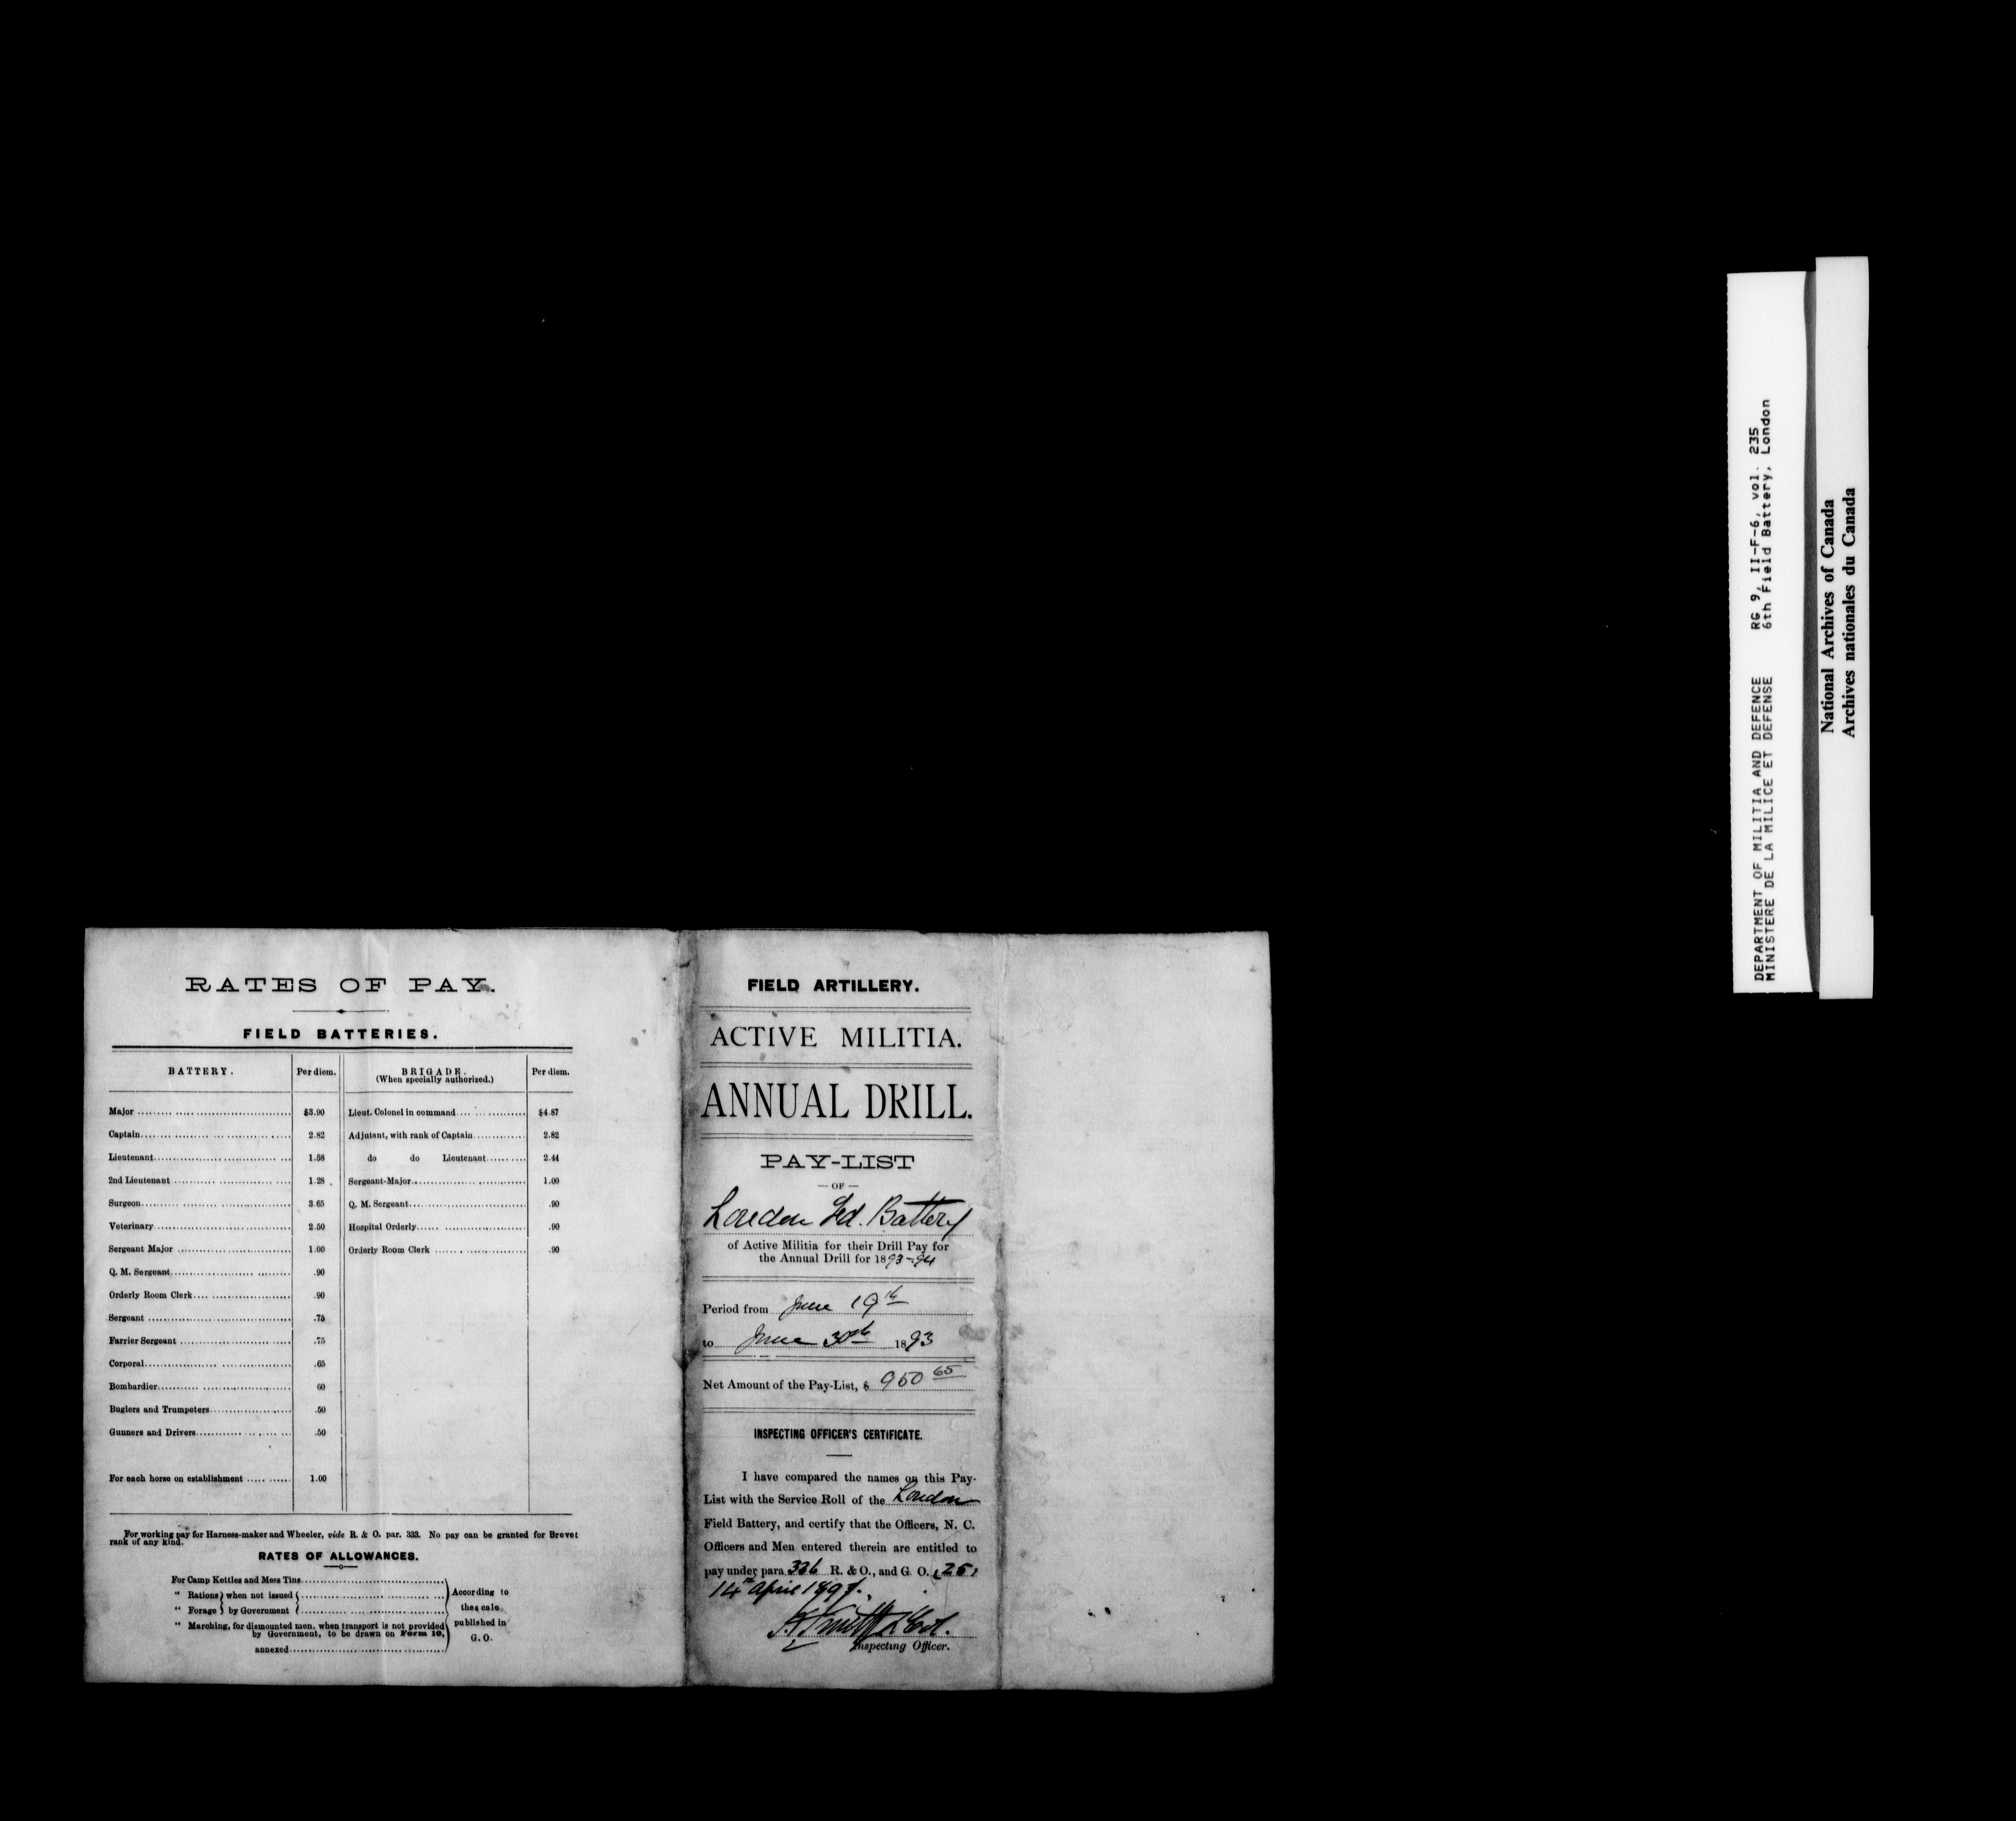 RATES OF PAY.
FIELD BATTERIES.
BATTERY. Per diem. BRIGADE. (When specially authorized.) Per diem.
Major $3.90 Lieut. Colonel in command $4.87
Captain 2.82 Adjutant, with rank of Captain 2.82
Lieutenant 1.58 do do Lieutenant 2.44
2nd Lieutenant 1.28 Sergeant-Major 1.00
Surgeon 3.65 Q. M. Sergeant .90
Veterinary 2.50 Hospital Orderly .90
Sergeant Major 1.00 Orderly Room Clerk .90
Q. M. Sergeant .90
Orderly Room Clerk .90
Sergeant .75
Farrier Sergeant .75
Corporal .65
Bombardier 60
Buglers and Trumpeters .50
Gunners and Drivers .50
For each horse on establishment 1.00
For working pay for Harness-maker and Wheeler, vide R. & O. par. 333. No pay can be granted for Brevet
rank of any kind.
RATES OF ALLOWANCES.
For Camp Kettles and Mess Tins
“ Rations } when not issued {
“ Forage } by Government {
“ Marching, for dismounted men, when transport is not provided
by Government, to be drawn on Form 10,
annexed
According to
the scale
published in
G. O.
FIELD ARTILLERY.
ACTIVE MILITIA.
ANNUAL DRILL.
PAY-LIST
— OF —
London Fd. Battery
of Active Militia for their Drill Pay for
the Annual Drill for 1893-94
Period from June 19th
to June 30th 1893
Net Amount of the Pay-List, $ 950 65
INSPECTING OFFICER'S CERTIFICATE.
I have compared the names on this Pay-
List with the Service Roll of the London
Field Battery, and certify that the Officers, N. C.
Officers and Men entered therein are entitled to
pay under para 336 R. & O., and G. O.
14th April
Inspecting Officer.
DEPARTMENT OF MILITIA AND DEFENCE RG 9, II-F-6, vol. 235
MINISTERE DE LA MILICE ET DEFENSE 6th Field Battery, London
National Archives of Canada
Archives nationales du Canada